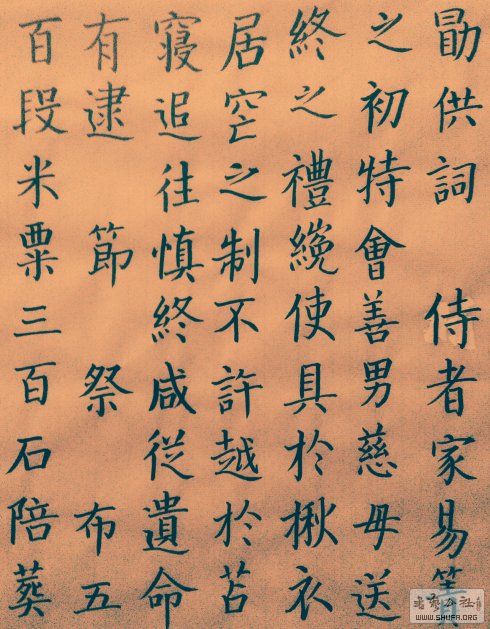 勖供詞 侍者家易簀
之初特會善男慈母送
終之禮纔使具於楸衣
居窆之制不許越於苫
寢追往慎終咸從遺命
有逮 節 祭 布五
百段米粟三百石陪葬
书艺公社
WWW.SHUFA.ORG